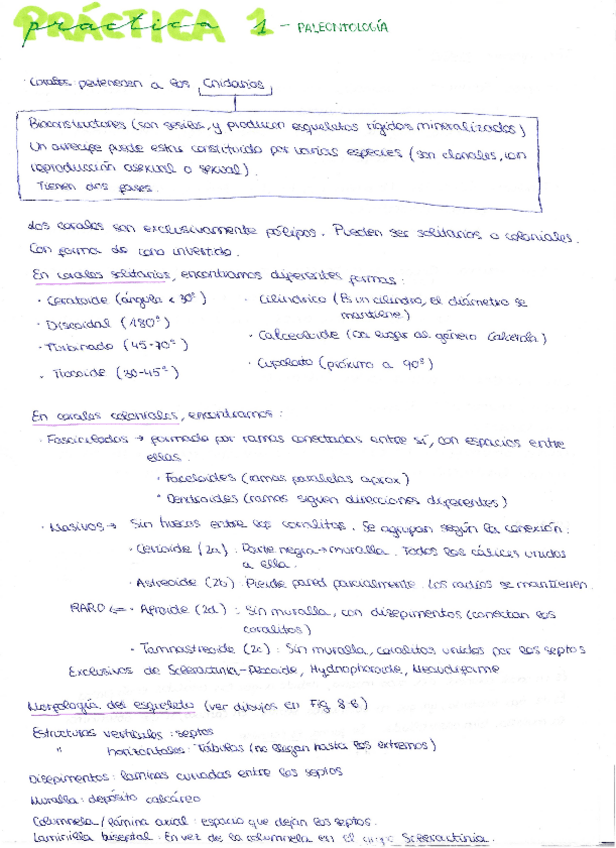 PRÁCTICA 1 - PALEONTOLOGÍA
práctica
· Corales pertenecen a los Cnidarios
Bioconstructores (son sésiles, y producen esqueletos rígidos mineralizados)
Un arrecife puede estar constituido por varias especies (son clonales, con
reproducción asexual o sexual).
Tienen dos fases.
Los corales son exclusivamente pólipos. Pueden ser solitarios o coloniales.
Con forma de cono invertido.
En corales solitarios, encontramos diferentes formas:
· Ceratoide (ángulo < 30º)
· Discoidal (180º)
· Turbinado (45-70º)
· Trocoide (30-45º)
· Cilíndrico (Es un cilindro, el diámetro se
mantiene)
· Calceoloide (Da lugar al género Calceola)
· Cupolado (próximo a 90º)
En corales coloniales, encontramos:
· Fasciculados → formado por ramas conectadas entre sí, con espacios entre
ellas.
· Faceloides (ramas paralelas aprox)
· Dendroides (ramas siguen direcciones diferentes)
· Masivos → Sin huecos entre los coralitos. Se agrupan según la conexión:
· Cerioide (2a): Parte negra → muralla. Todos los cálices unidos
a ella.
· Astreoide (2b): Pierde pared parcialmente. Los radios se mantienen.
RARO ⇐ · Afroide (2d): Sin muralla, con disepimentos (conectan los
coralitos)
· Tamnastreoide (2c): Sin muralla, coralitos unidos por los septos
Exclusivos de Scleractinia - Plocoide, Hydnophoroide, Meandriforme
Morfología del esqueleto (ver dibujos en Fig 8-8)
Estructuras verticales: septos
" horizontales: Tábulas (no llegan hasta los extremos)
Disepimentos: láminas curvadas entre los septos
Muralla: depósito calcáreo
Columnela / lámina axial: espacio que dejan los septos.
Laminilla biseptal: En vez de la columnela en el grupo Scleractinia.